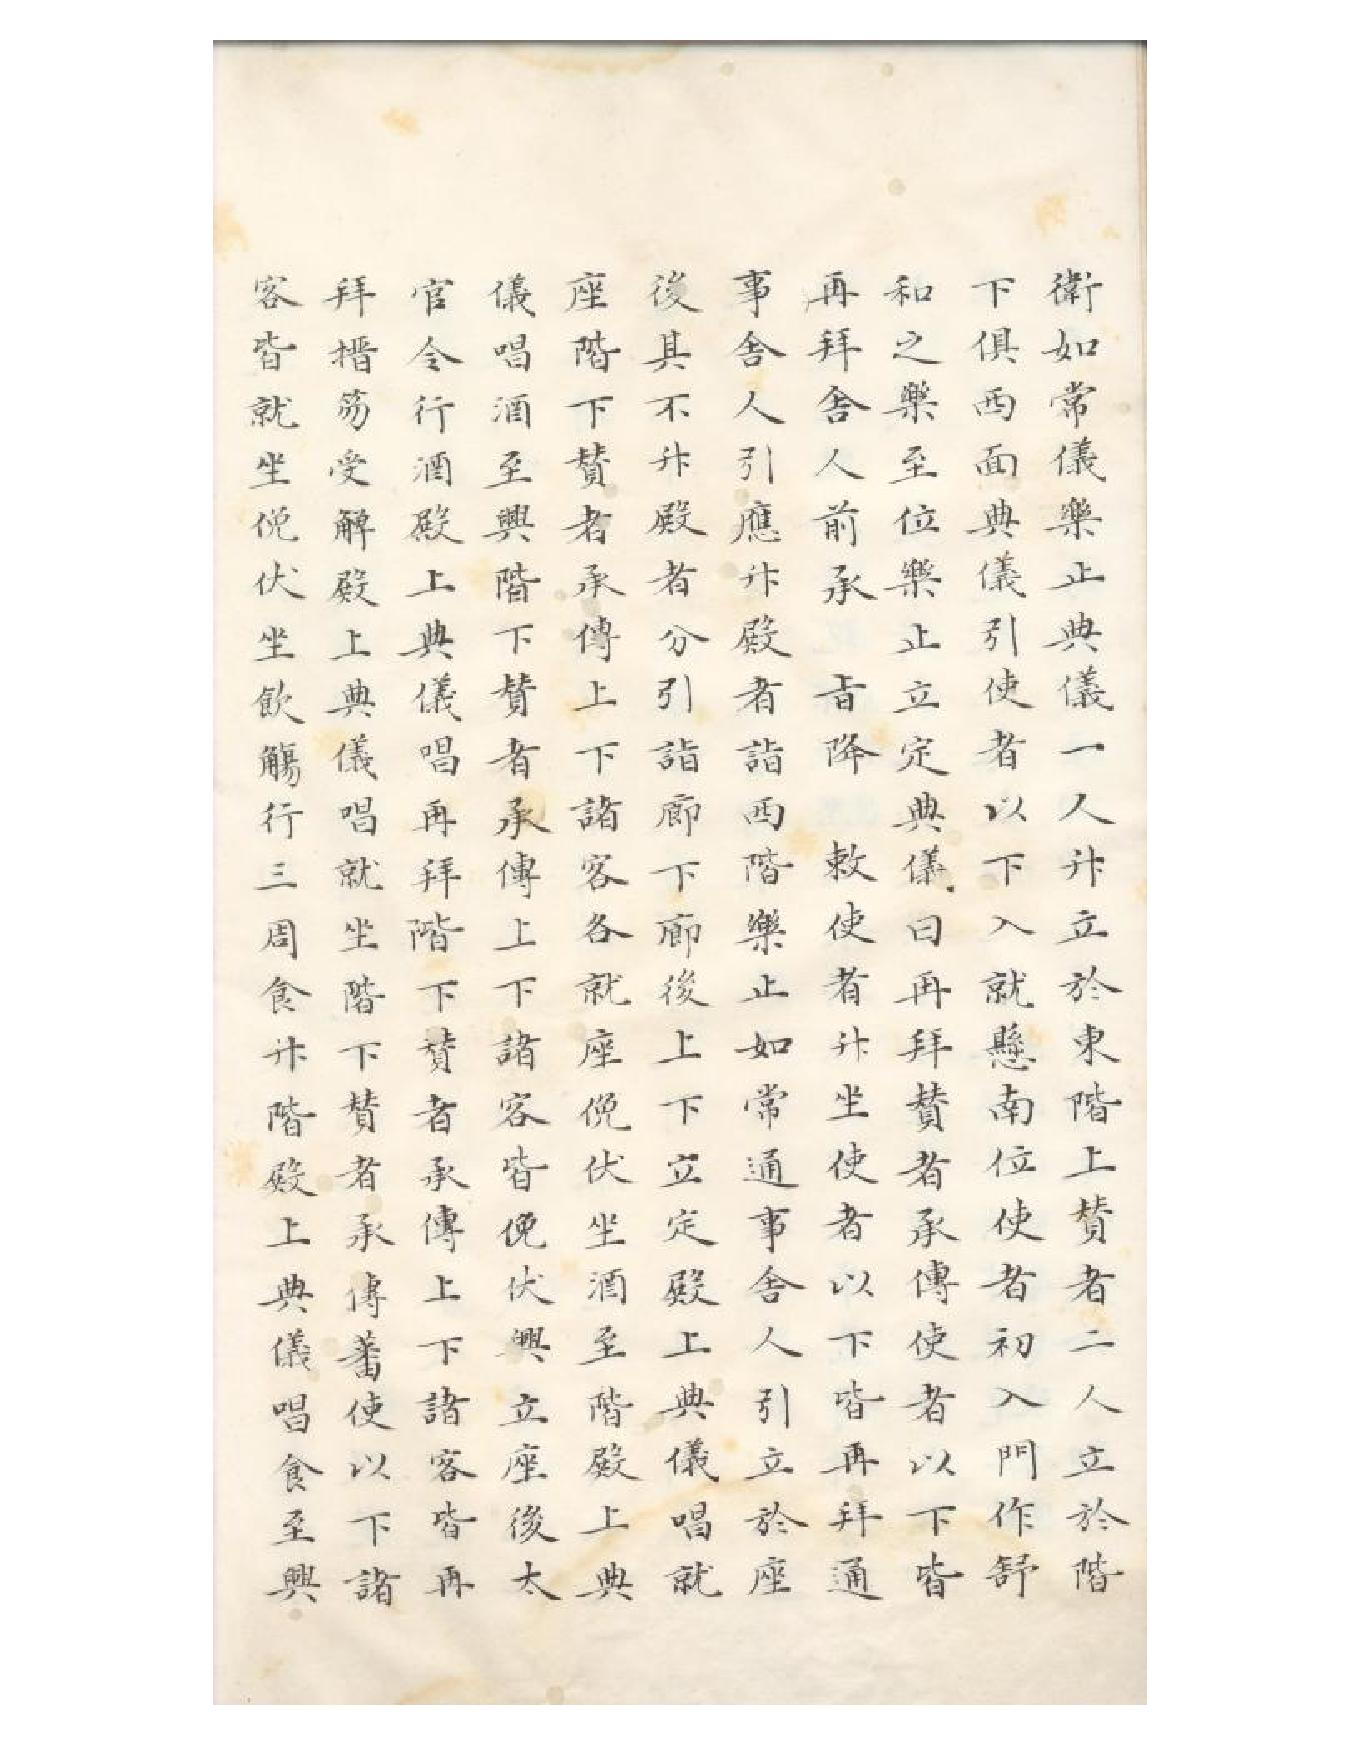 衛如常儀樂止典儀一人升立於東階上贊者二人立於階
下俱西面典儀引使者以下入就懸南位使者初入門作舒
和之樂至位樂止立定典儀曰再拜贊者承傳使者以下皆
再拜舍人前承旨降敕使者升坐使者以下皆再拜通
事舍人引應升殿者詣西階樂止如常通事舍人引立於座
後其不升殿者分引詣廊下廊後上下立定殿上典儀唱就
座階下贊者承傳上下諸客各就座俛伏坐酒至階殿上典
儀唱酒至興階下贊者承傳上下諸客皆俛伏興立座後太
官令行酒殿上典儀唱再拜階下贊者承傳上下諸客皆再
拜搢笏受觶殿上典儀唱就坐階下贊者承傳蕃使以下諸
客皆就坐俛伏坐飲觴行三周食升階殿上典儀唱食至興